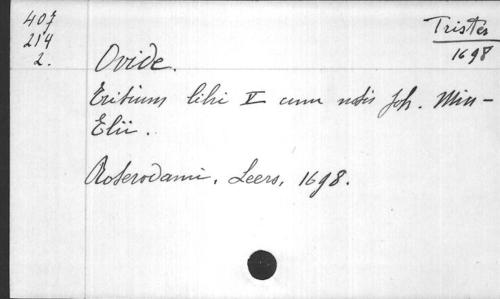 407
214
2.
Tristes
1698
Ovide.
Tristium libri V cum notis Joh. Min-
Elii.
Roterodami, Leers, 1698.